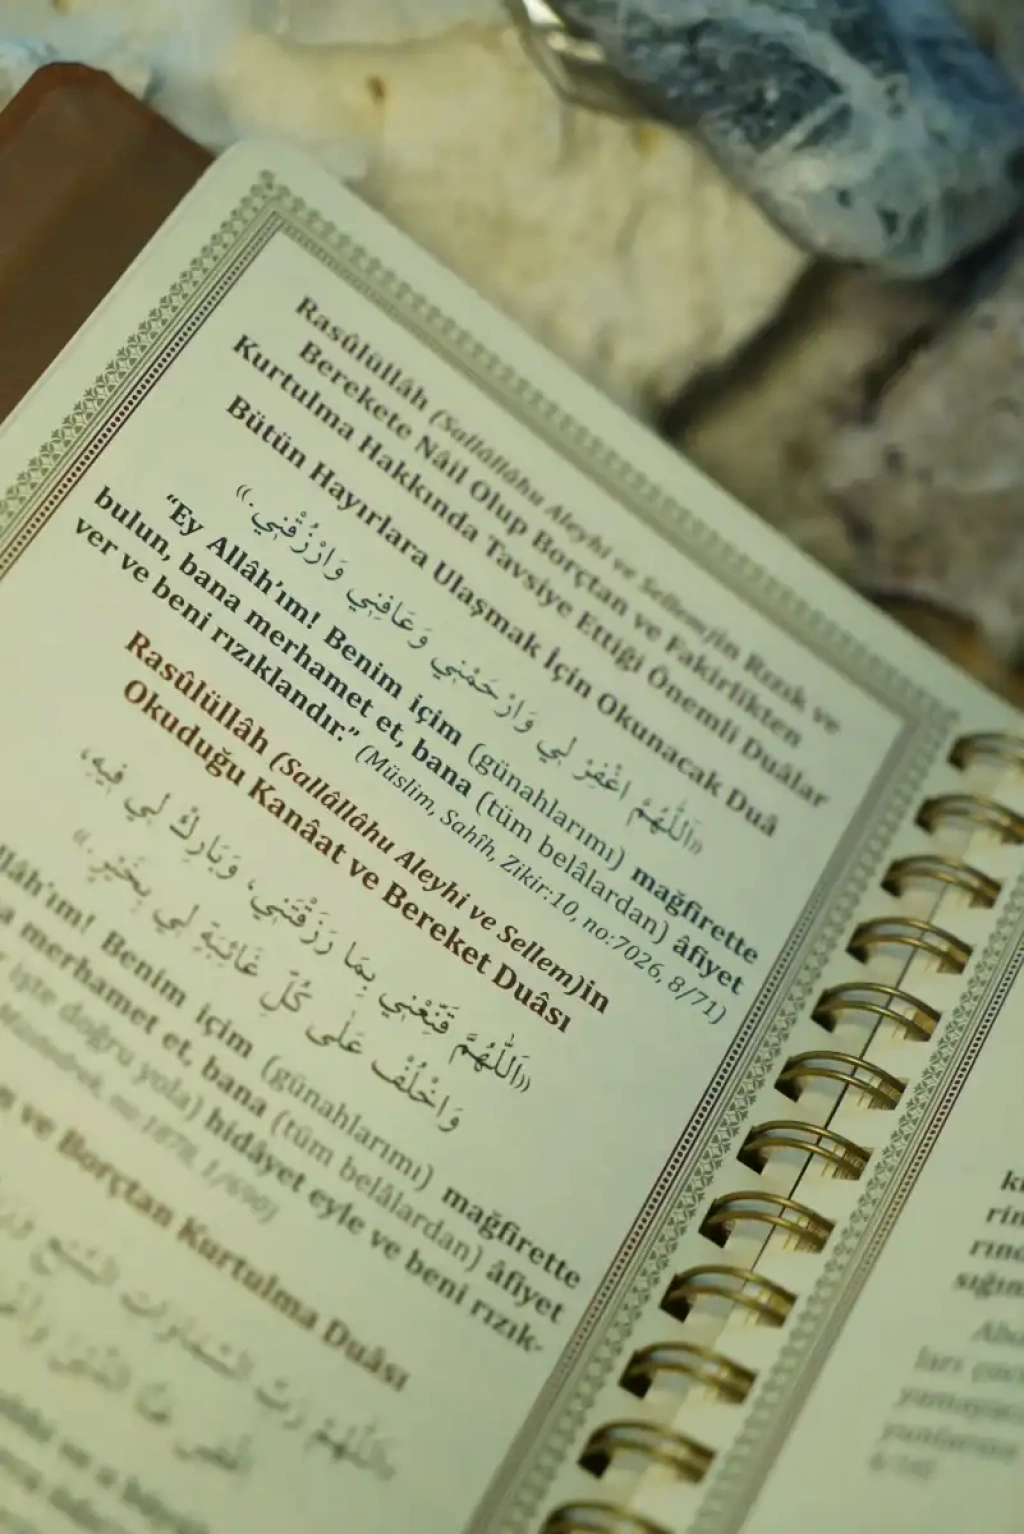 Rasûlüllâh (Sallâllâhu Aleyhi ve Sellem)in Rızık ve
Berekete Nâil Olup Borçtan ve Fakirlikten
Kurtulma Hakkında Tavsiye Ettiği Önemli Duâlar
Bütün Hayırlara Ulaşmak İçin Okunacak Duâ
«اَللّٰهُمَّ اغْفِرْ لِي وَارْحَمْنِي وَعَافِنِي وَارْزُقْنِي.»
“Ey Allâh’ım! Benim içim (günahlarımı) mağfirette
bulun, bana merhamet et, bana (tüm belâlardan) âfiyet
ver ve beni rızıklandır.” (Müslim, Sahîh, Zikir:10, no:7026, 8/71)
Rasûlüllâh (Sallâllâhu Aleyhi ve Sellem)in
Okuduğu Kanâat ve Bereket Duâsı
«اَللّٰهُمَّ قَنِّعْنِي بِمَا رَزَقْتَنِي، وَبَارِكْ لِي فِيهِ،
وَاخْلُفْ عَلَى كُلِّ غَائِبَةٍ لِي بِخَيْرٍ.»
llâh’ım! Benim içim (günahlarımı) mağfirette
merhamet et, bana (tüm belâlardan) âfiyet
işte doğru yola) hidâyet eyle ve beni rızık-
no:1878, 1/690)
ve Borçtan Kurtulma Duâsı
اَللّٰهُمَّ رَبَّ السَّمَاوَاتِ السَّبْعِ
kı
rin
rınd
sığın